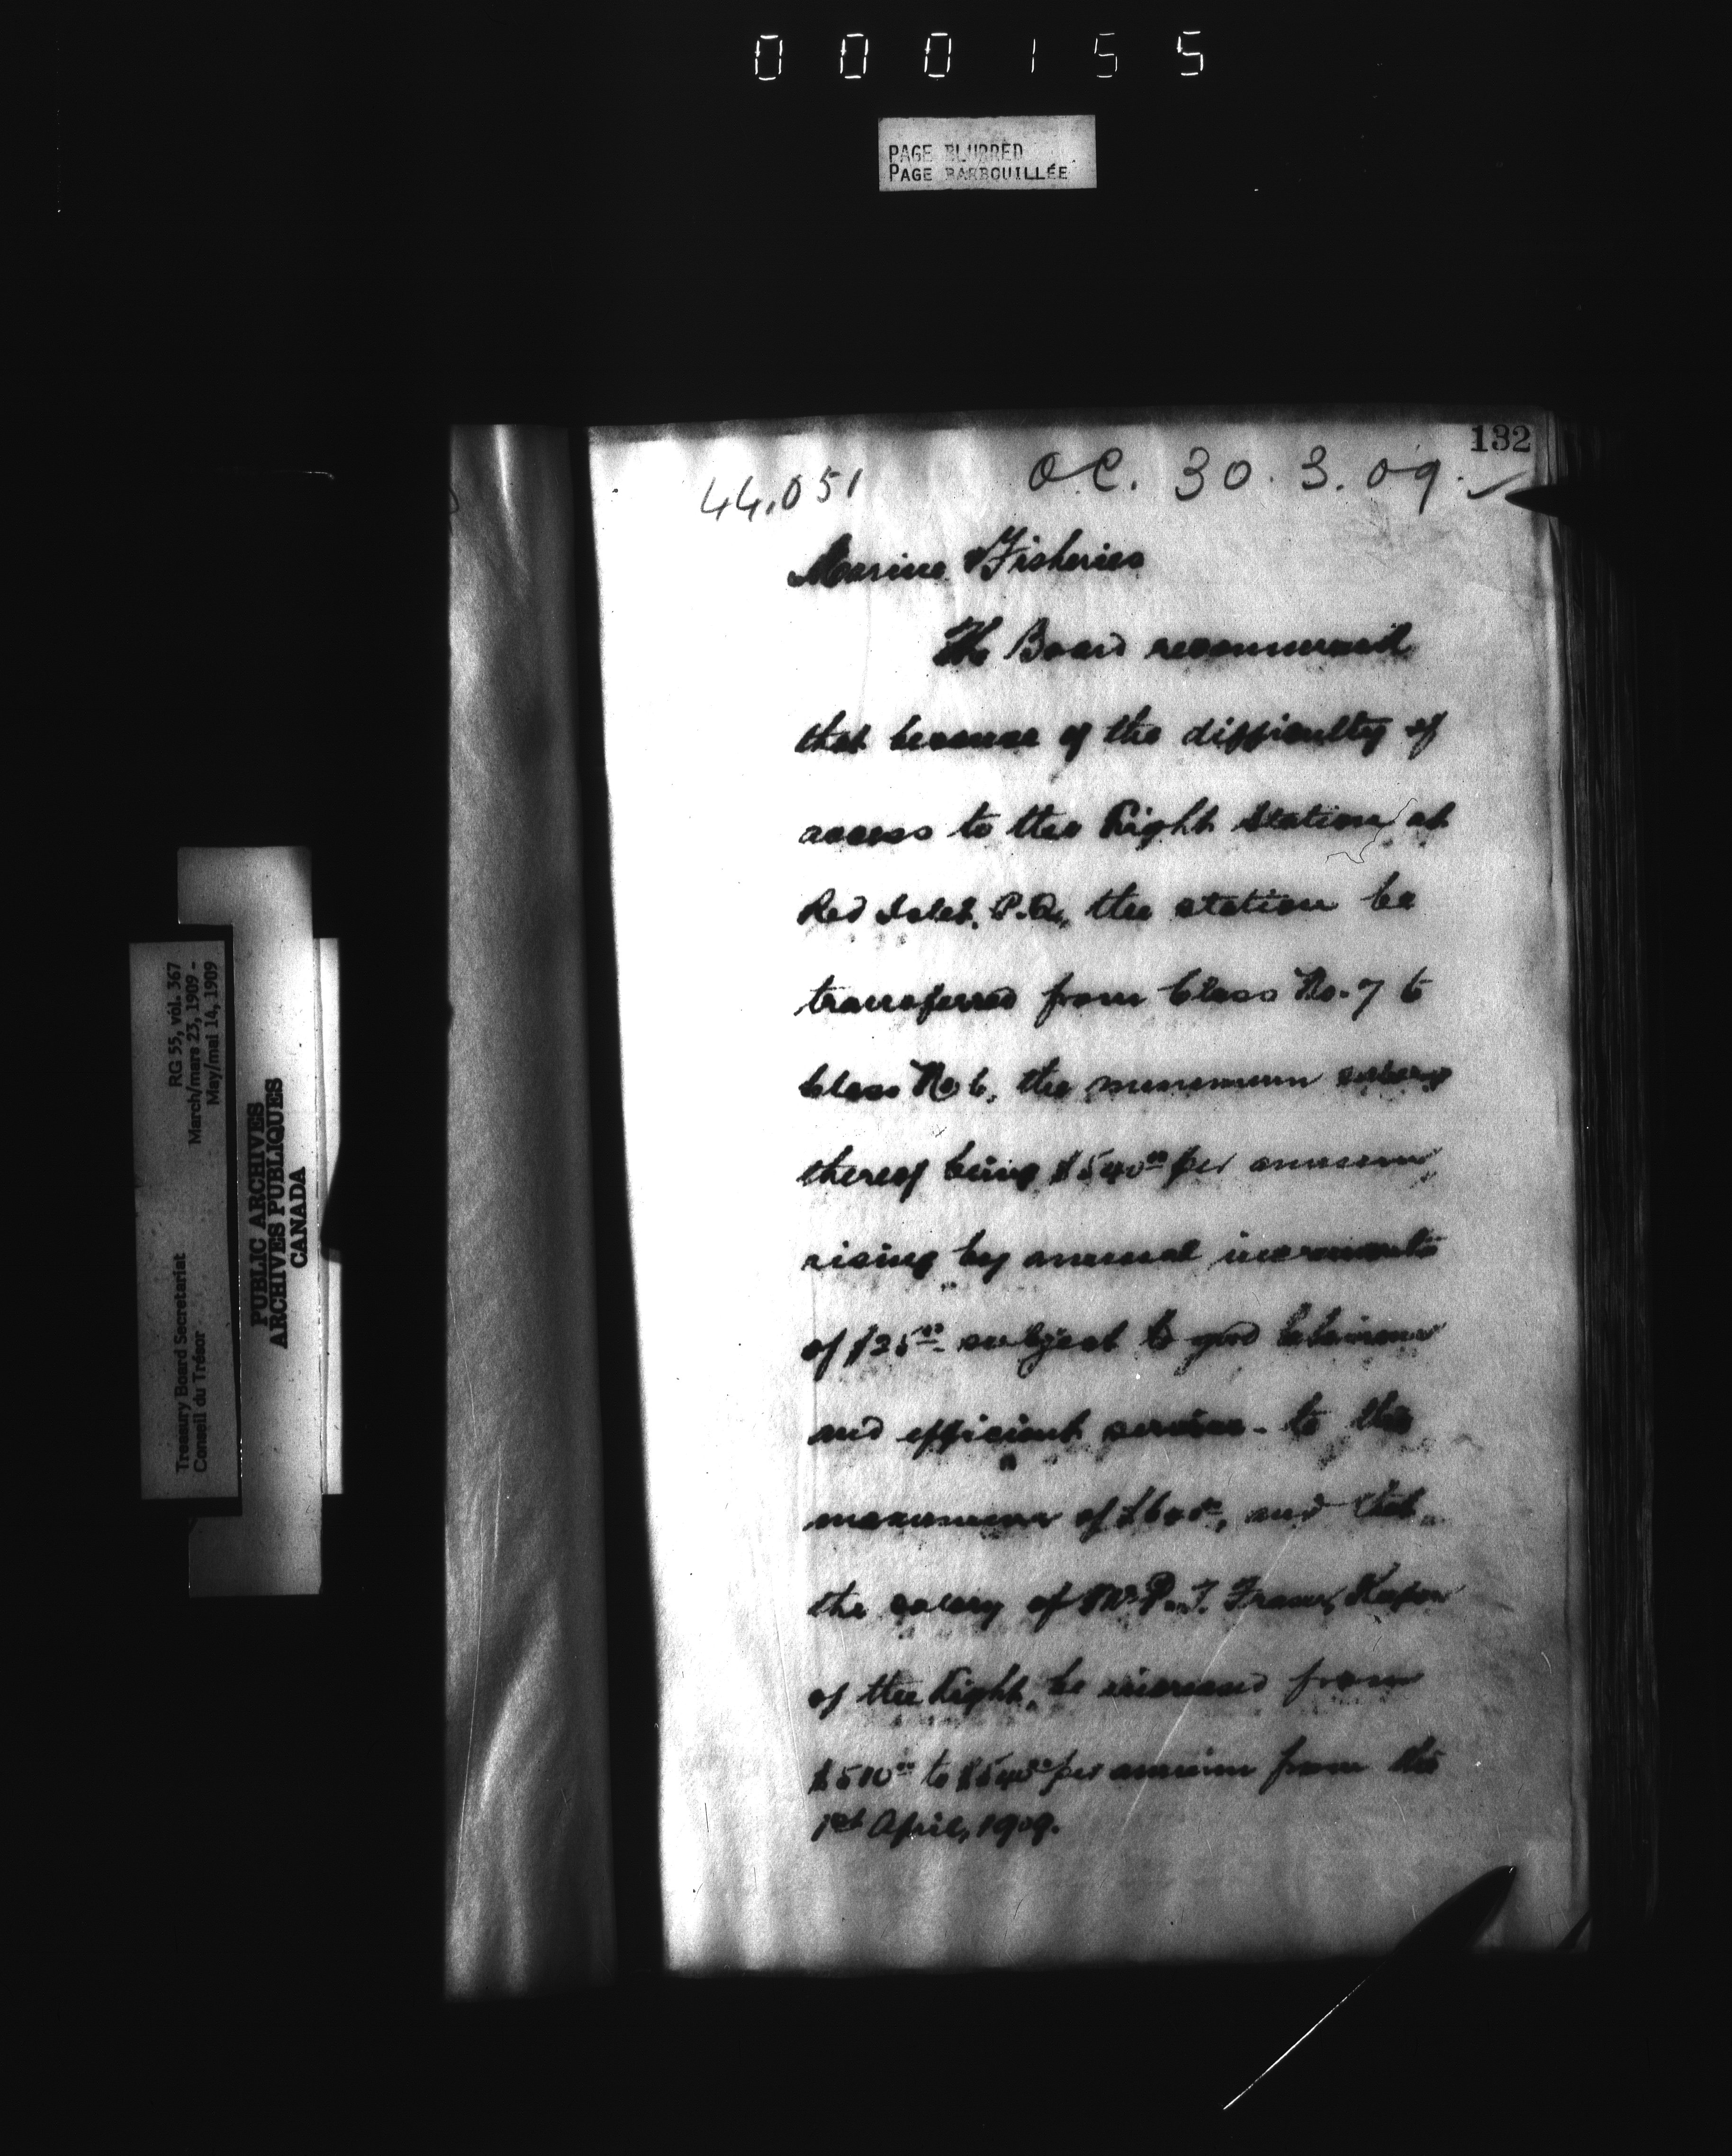 000155
PAGE BLURRED
PAGE BARBOUILLÉE
132
44,051
OC. 30.3.09. ✓
Marine & Fisheries
The Board recommend
that because of the difficulty of
access to the Light Station at
Red Islet, P.Q., the station be
transferred from Class No. 7 to
Class No 6, the minimum salary
thereof being $540⁰⁰ per annum,
rising by annual increments
of $25⁰⁰ subject to good behaviour
and efficient service - to the
maximum of $600⁰⁰, and that
the salary of Mr. P. T. Fraser, Keeper
of the Light, be increased from
$510⁰⁰ to $540⁰⁰ per annum from the
1st April, 1909.
Treasury Board Secretariat
Conseil du Trésor
RG 55, vol. 367
March/mars 23, 1909 -
May/mai 14, 1909
PUBLIC ARCHIVES
ARCHIVES PUBLIQUES
CANADA